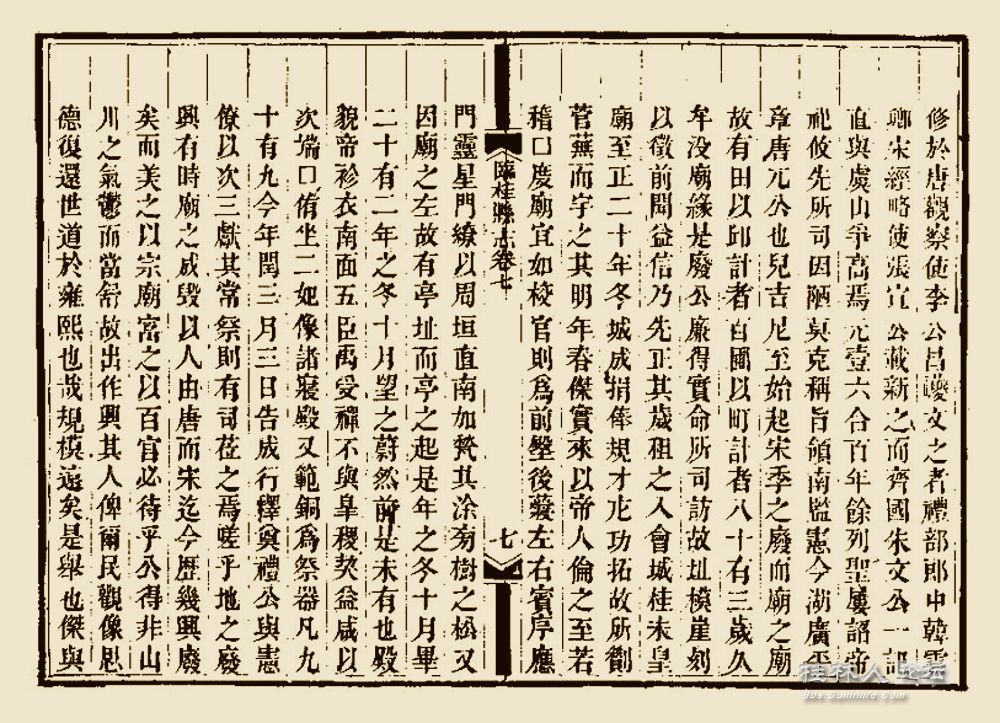 修於唐觀察使李公昌巙文之者禮部郎中韓雲
卿宋經略使張宣公栽新之而齊國朱文公一記
直與虞山爭高焉元壹六合百年餘列聖屢詔帝
祀攸先所司因陋莫克稱旨領南監憲今湖廣平
章唐兀公也兒吉尼至始起宋季之廢而廟之廟
故有田以邱計者百國以町計者八十有三歲久
牟没廟緣是廢公廉得實命所司訪故址模崖刻
以徵前聞益信乃先正其歲租之入會城桂未皇
廟至正二十年冬城成捐俸規才庀功拓故所劚
菅蕪而宇之其明年春傑實來以帝人倫之至若
稽口度廟宜如校官則爲前壂後䕶左右賓序應
門靈星門繚以周垣直南加甃其涂旁樹之松又
因廟之左故有亭址而亭之起是年之冬十月畢
二十有二年之冬十月望之蔚然前是未有也殿
貌帝袗衣南面五臣禹受禪不與皐稷契益咸以
次端口侑坐二妃像諸寢殿又範銅爲祭器凡九
十有九今年閏三月三日告成行釋奠禮公與憲
僚以次三獻其常祭則有司莅之焉嗟乎地之廢
興有時廟之成毁以人由唐而宋迄今歷幾興廢
矣而美之以宗廟富之以百官必待乎公得非山
川之氣鬱而當舒故出作興其人俾爾民觀像思
德復還世道於雍熙也哉規模遠矣是舉也傑與
臨桂縣志卷七
七
桂林人论坛
bbs.Guilinlife.com